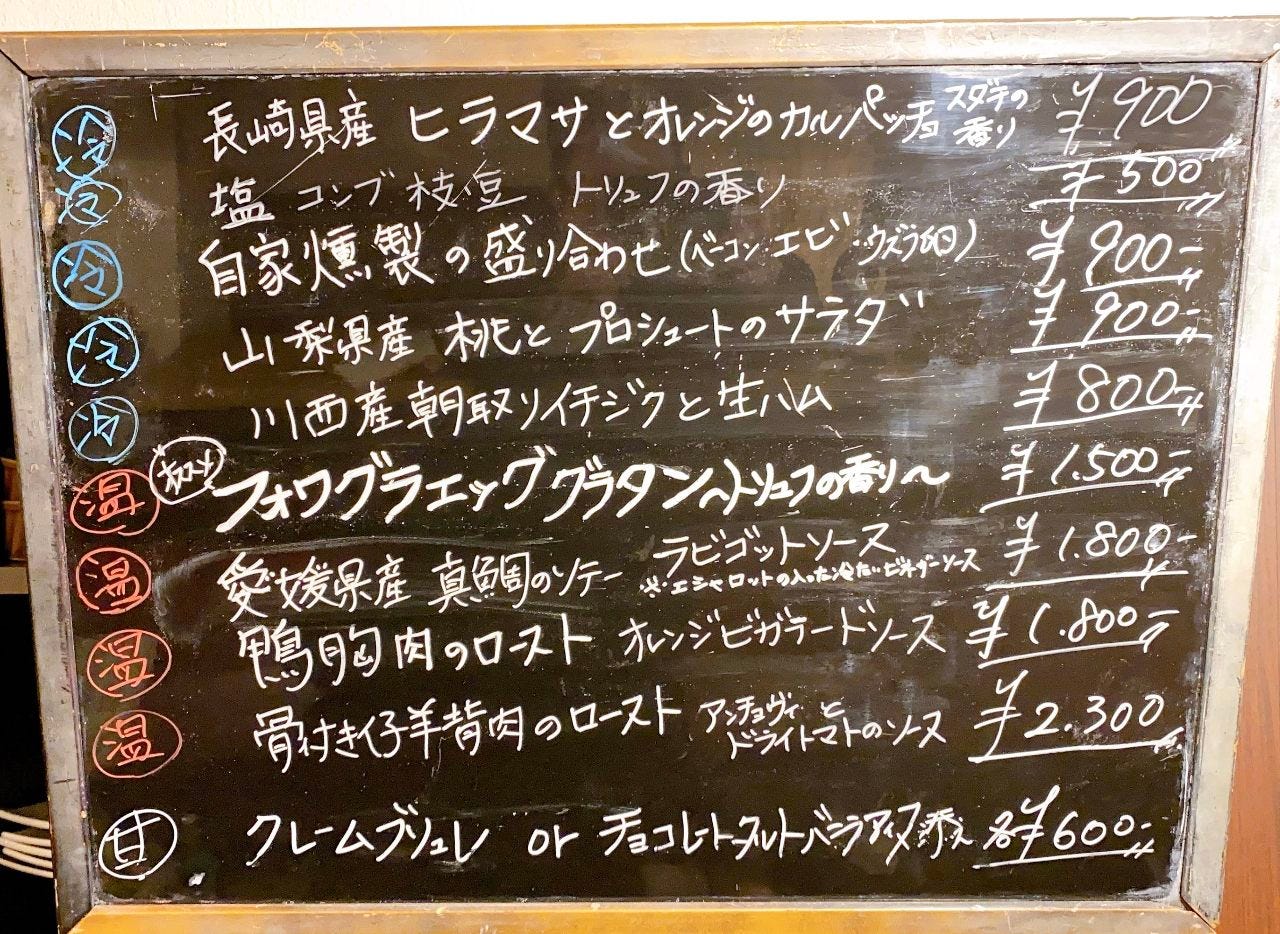 冷 長崎県産 ヒラマサとオレンジのカルパッチョ スダチの香り ¥900
冷 塩コンブ枝豆 トリュフの香り ¥500
冷 自家燻製の盛り合わせ(ベーコン・エビ・ウズラ卵) ¥900-
冷 山梨県産 桃とプロシュートのサラダ ¥900-
冷 川西産朝取りイチジクと生ハム ¥800-
温 オススメ フォワグラエッググラタン〜トリュフの香り〜 ¥1.500-
温 愛媛県産 真鯛のソテー ラビゴットソース ¥1.800-
※エシャロットの入った冷たいビネガーソース
温 鴨胸肉のロースト オレンジビガラードソース ¥1.800-
温 骨付き仔羊背肉のロースト アンチョヴィとドライトマトのソース ¥2.300
甘 クレームブリュレ or チョコレートタルトバニラアイス添え 各¥600-